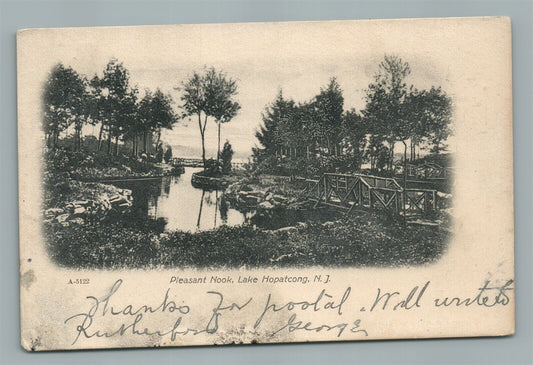 A-5122
Pleasant Nook, Lake Hopatcong, N. J.
Thanks for postal. Will write to
Rutherford or George